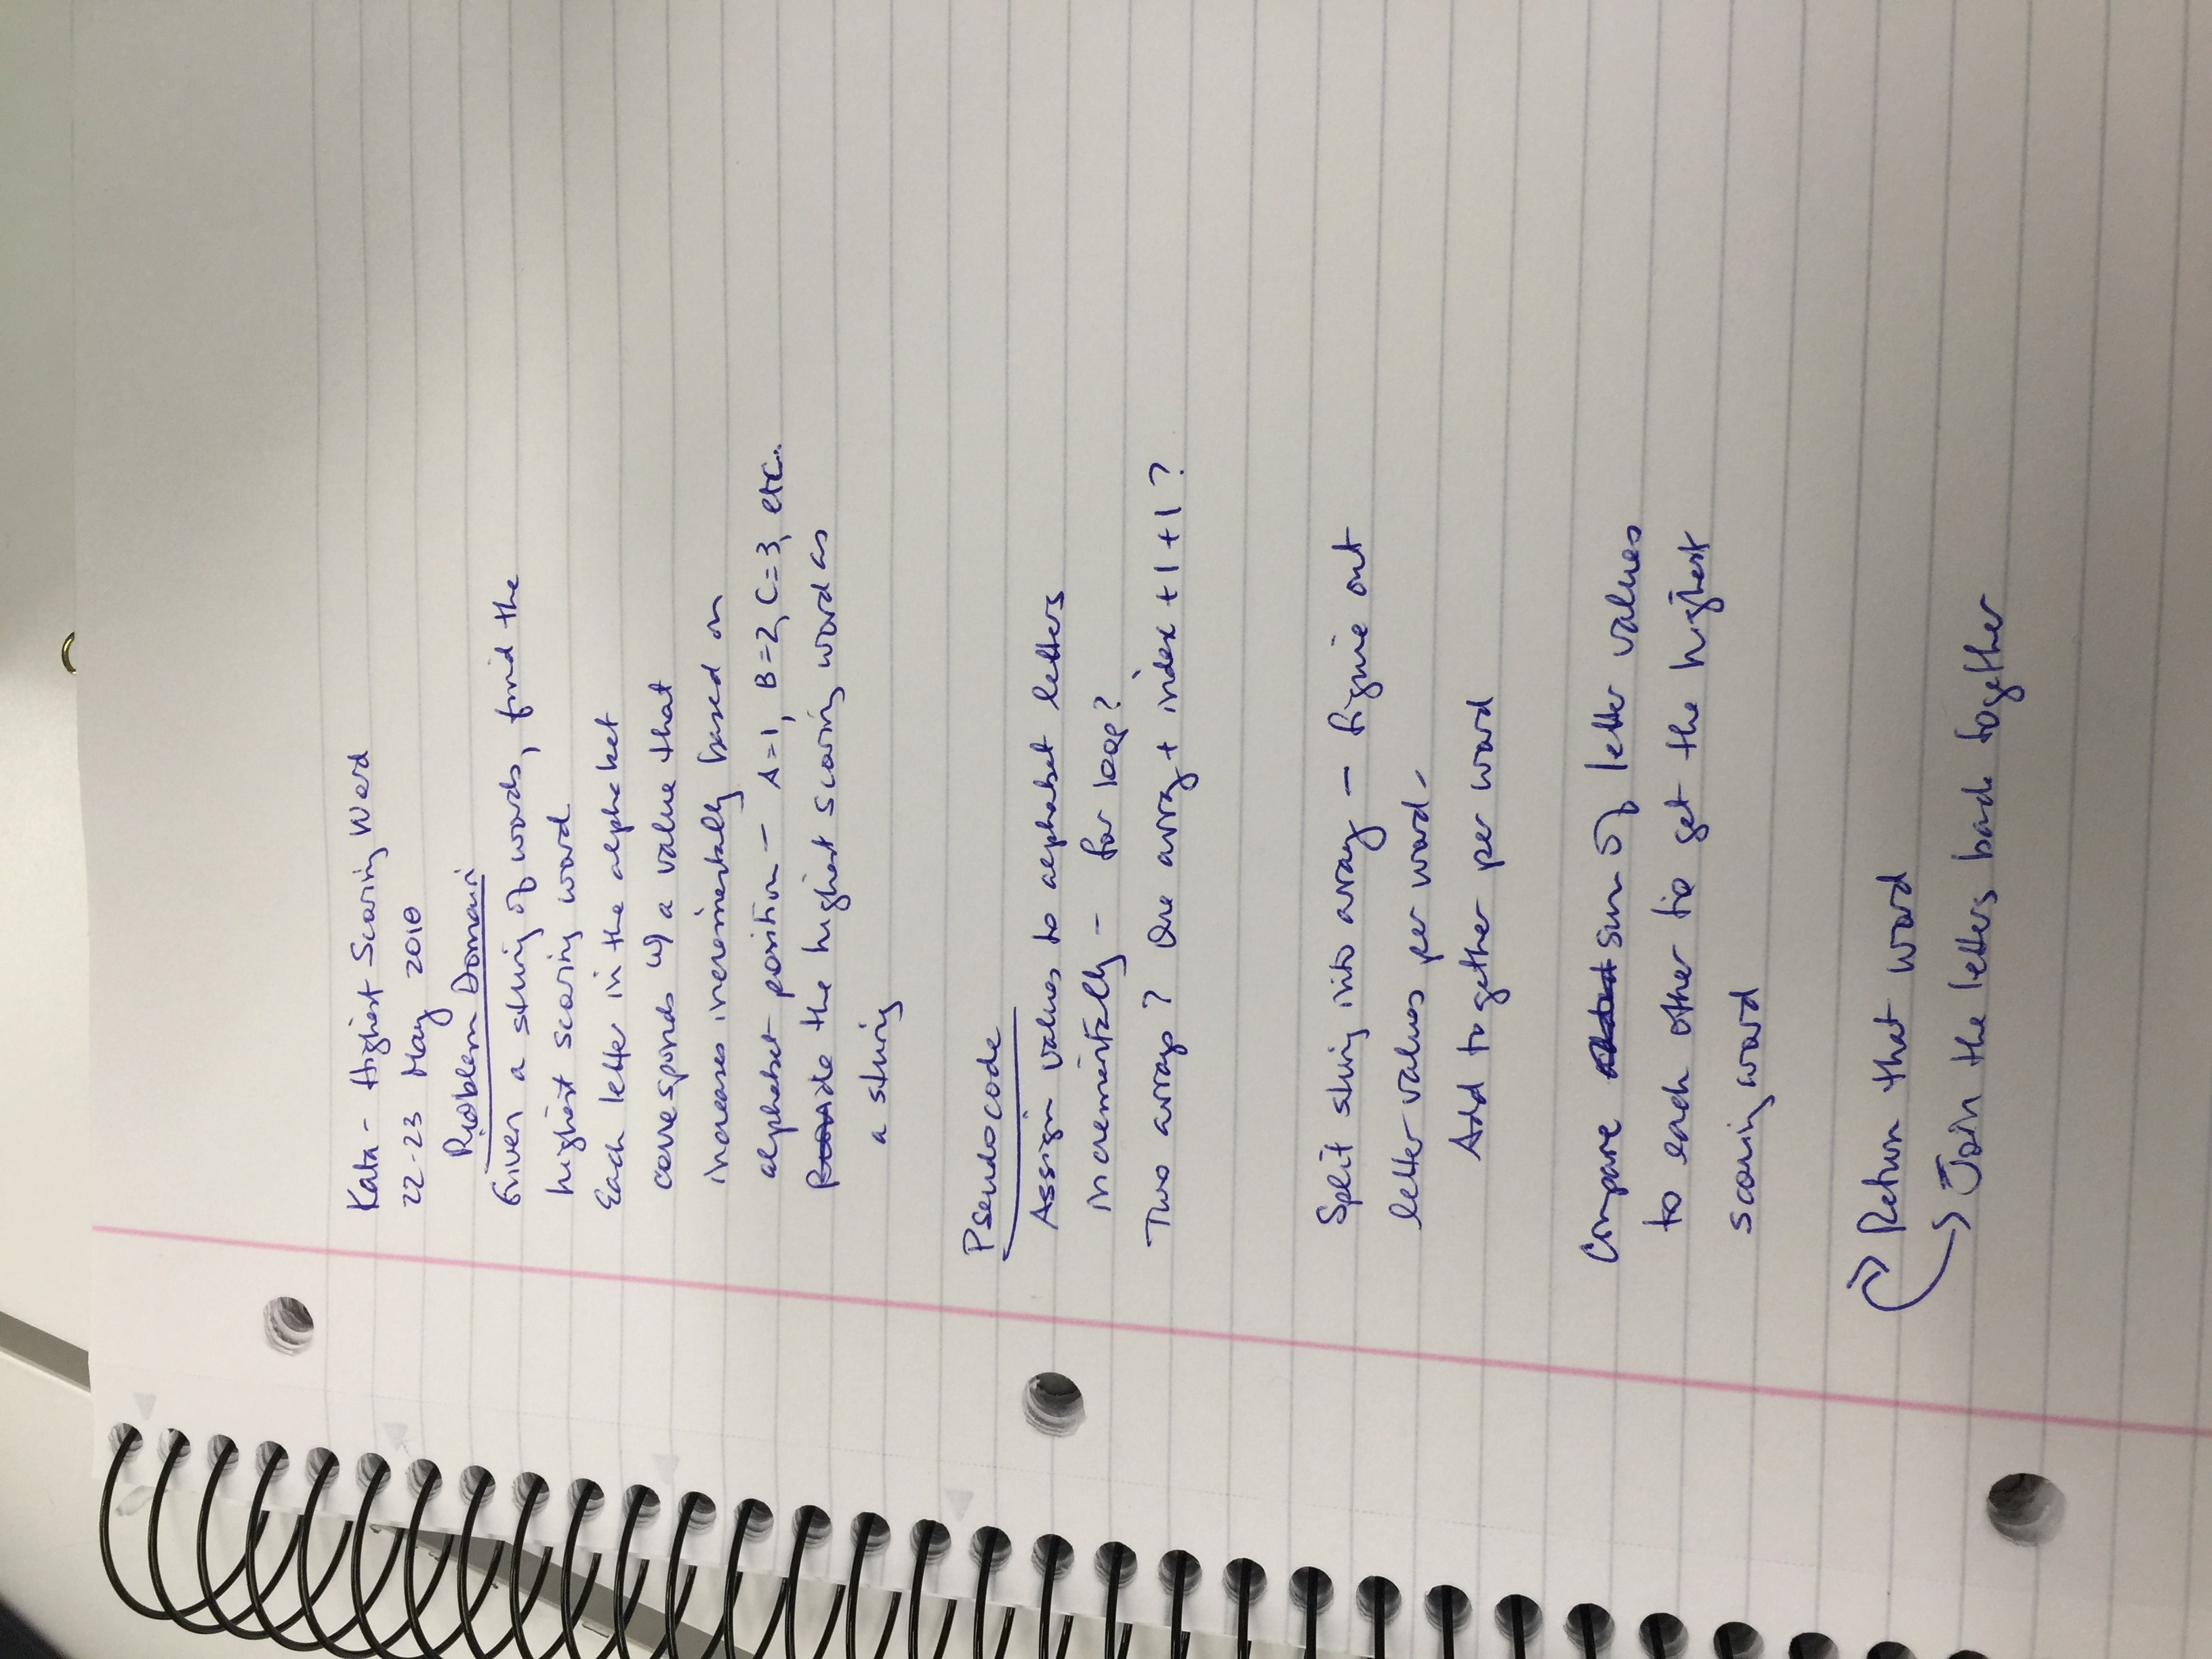 Kata - Highest Scoring Word
22-23 May 2018
Problem Domain
Given a string of words, find the
highest scoring word
Each letter in the alphabet
corresponds w/ a value that
increases incrementally based on
alphabet position - A=1, B=2, C=3, etc.
Provide the highest scoring word as
a string
Pseudocode
Assign values to alphabet letters
incrementally - for loop?
Two arrays? One array + index +1 +1?
Split string into array - figure out
letter values per word -
Add together per word
Compare added sum of letter values
to each other to get the highest
scoring word
Return that word
Join the letters back together